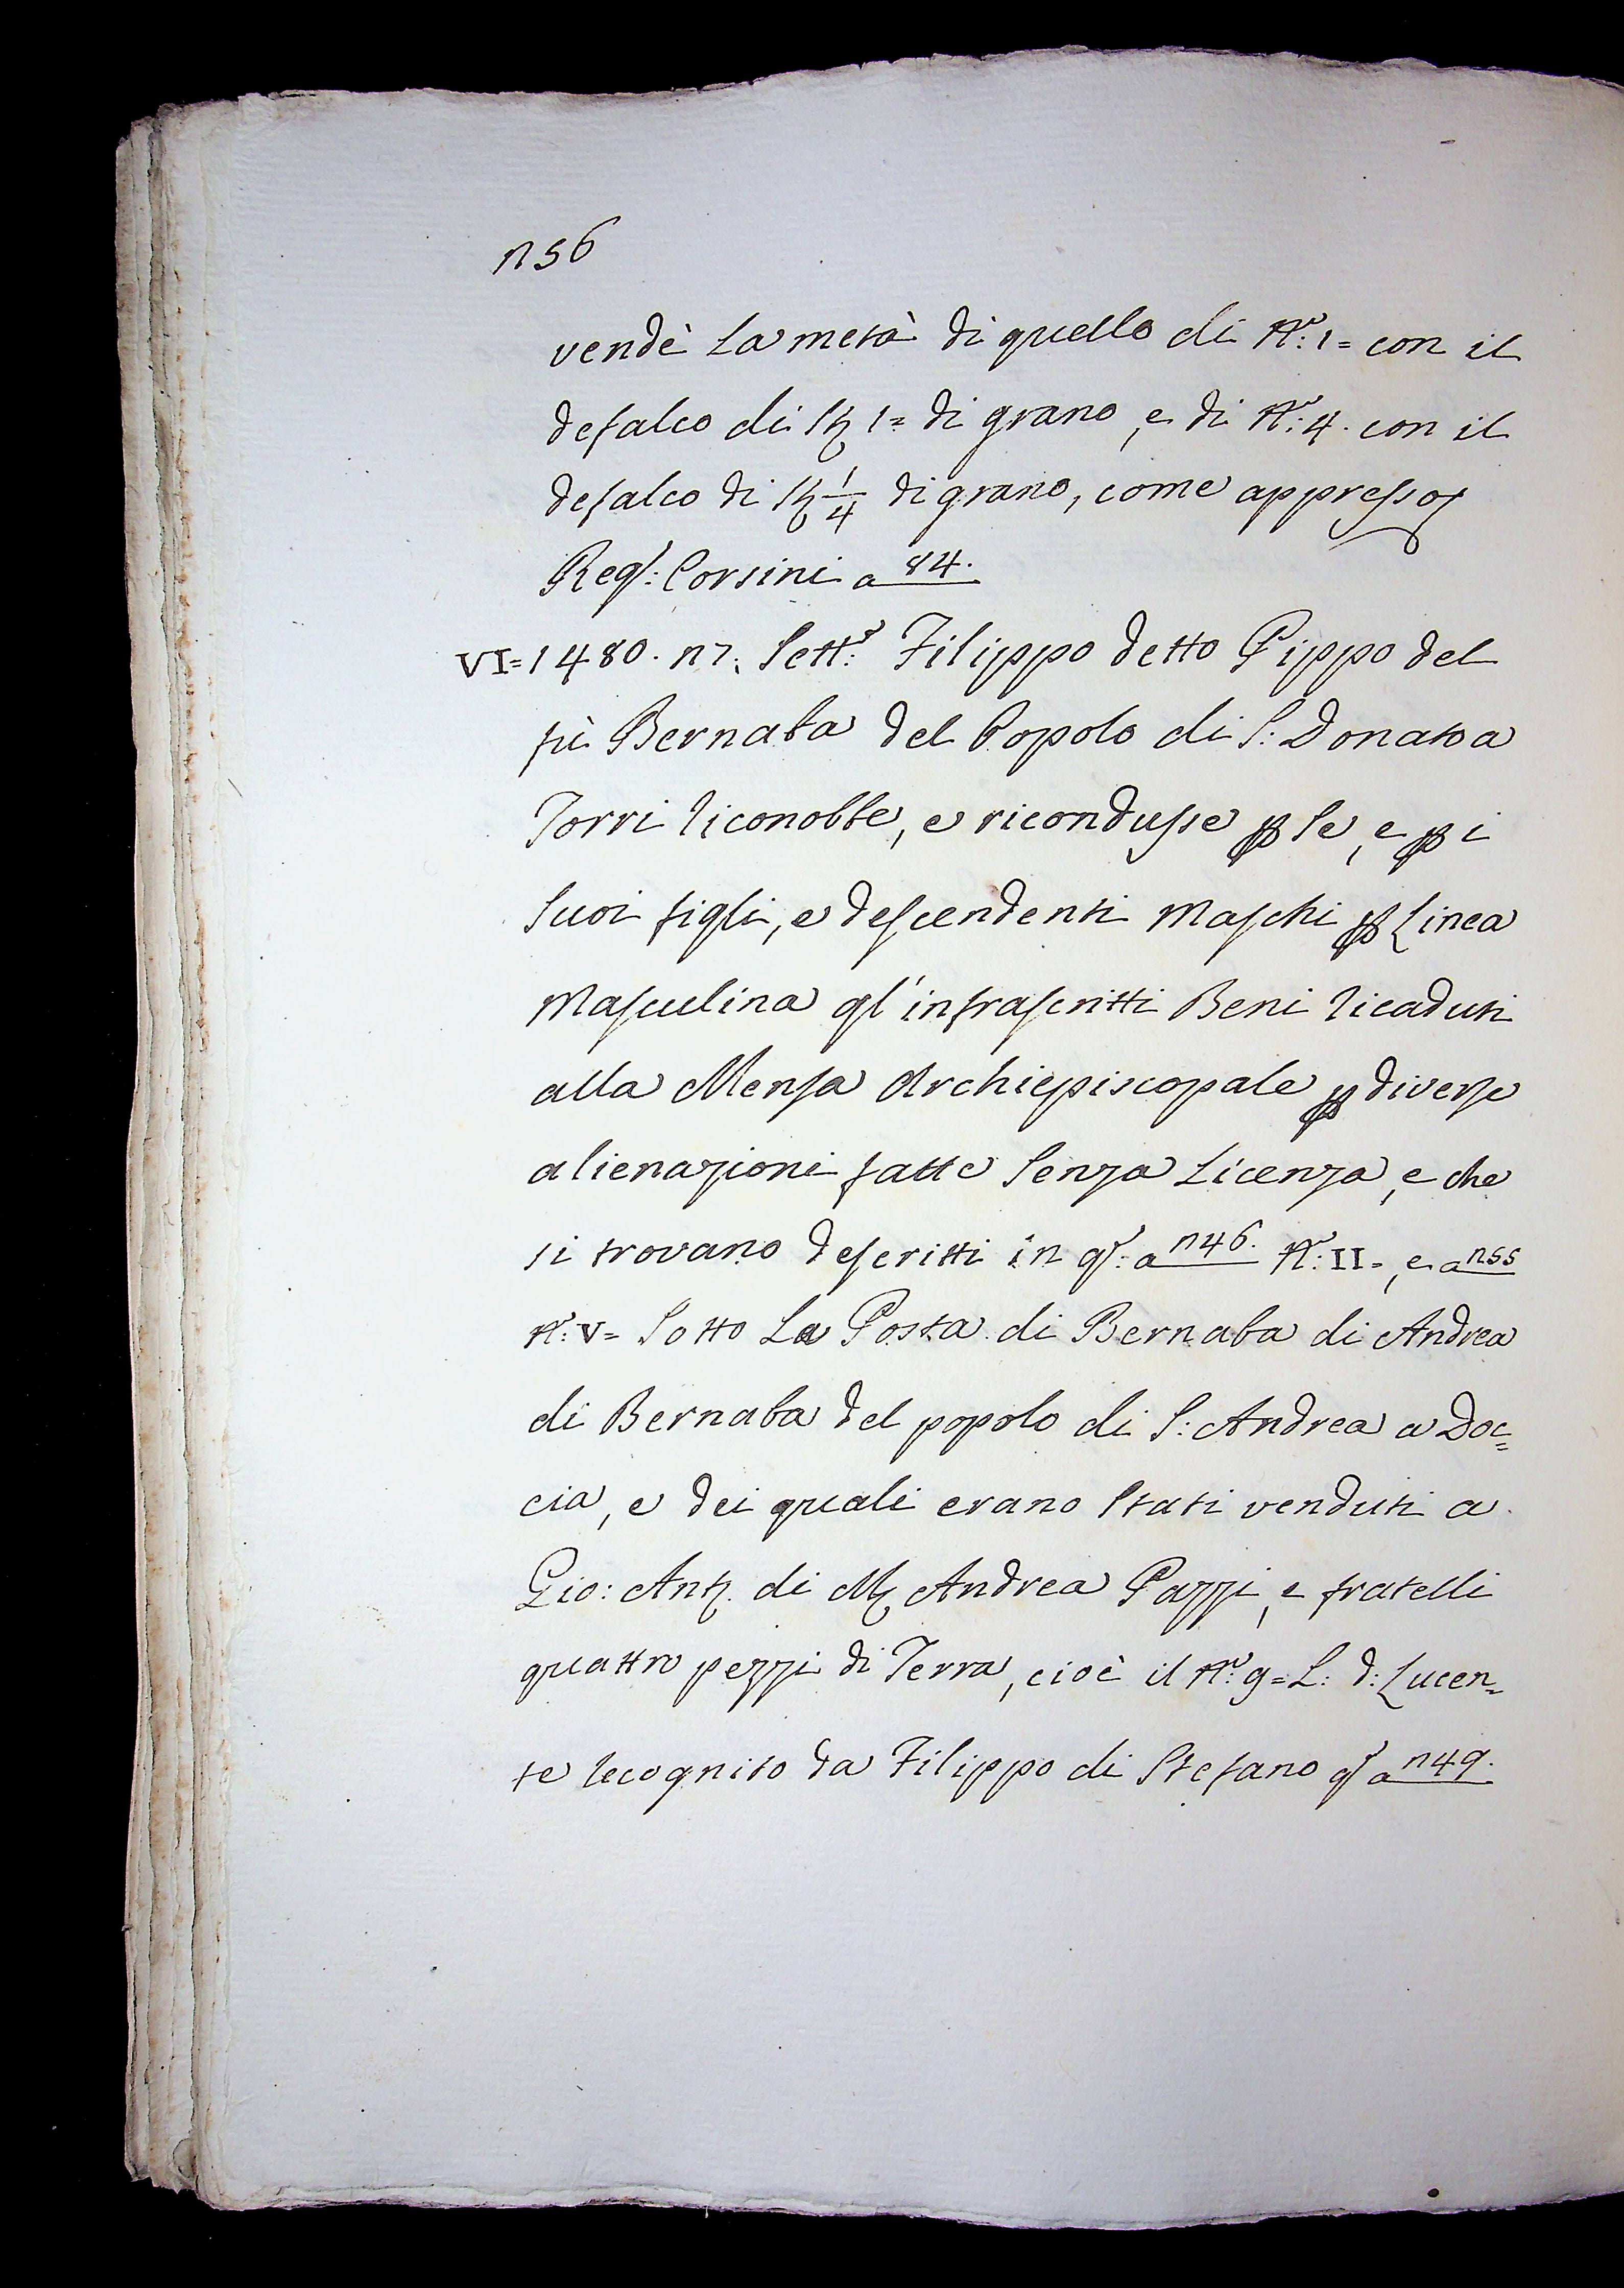 156
vendè La metà di quello di N.º: 1= con il
defalco di St. 1= di grano, e di N.º: 4. con il
defalco di St. 1/4 di grano, come appresso
Regº: Corsini a 84.
VI=1480. 17. Sett.e Filippo detto Pippo del
fù Bernaba del Popolo di S: Donato a
Torri riconobbe, e ricondusse p Se, e p i
Suoi figli, e descendenti Maschi p Linea
Masculina gl'infrascritti Beni ricaduti
alla Mensa Archiepiscopale p diverse
alienazioni fatte Senza Licenza, e che
si trovano descritti in qº: a 146. N.º: II=, e a 155
N.º: V= Sotto La Posta di Bernaba di Andrea
di Bernaba del popolo di S: Andrea a Doc=
cia, e dei quali erano Stati venduti a
Gio: Ant. di M. Andrea Pazzi, e fratelli
quattro pezzi di Terra, cioè il N.º: 9= L: d: Lucen=
te recognito da Filippo di Stefano qº a 149.